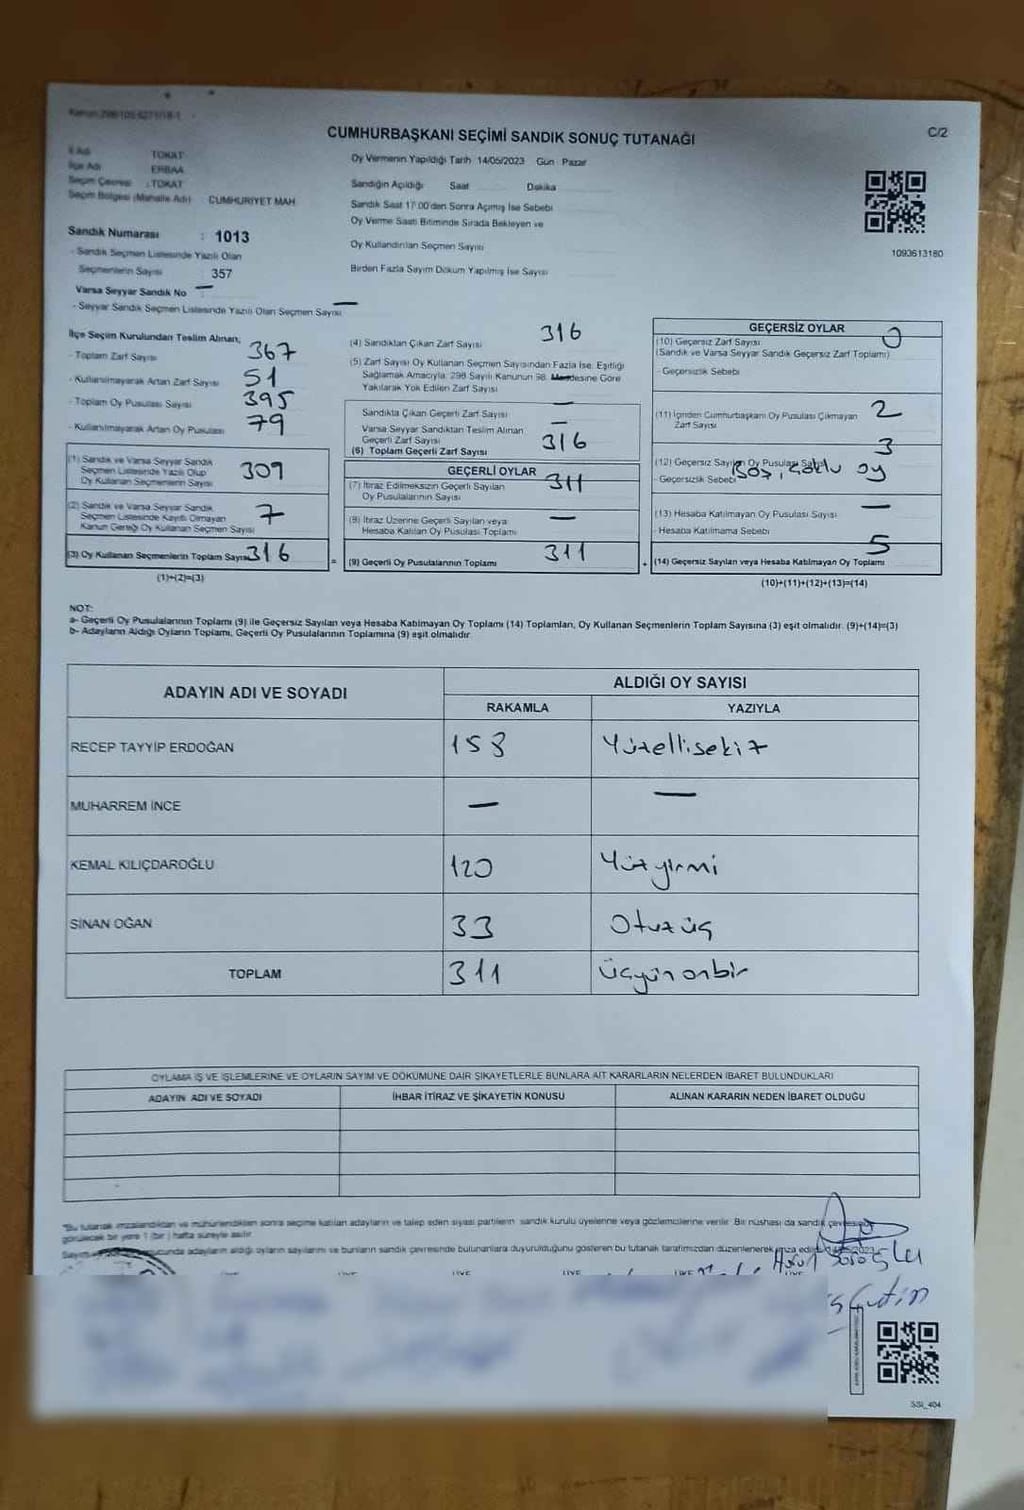 CUMHURBAŞKANI SEÇİMİ SANDIK SONUÇ TUTANAĞI
C/2
İl Adı TOKAT
İlçe Adı ERBAA
Seçim Çevresi : TOKAT
Seçim Bölgesi (Mahalle Adı) CUMHURİYET MAH.
Oy Vermenin Yapıldığı Tarih 14/05/2023 Gün Pazar
Sandığın Açıldığı Saat Dakika
Sandık Saat 17:00'den Sonra Açılmış İse Sebebi
Oy Verme Saati Bitiminde Sırada Bekleyen ve
Oy Kullandırılan Seçmen Sayısı
Birden Fazla Sayım Döküm Yapılmış İse Sayısı
1093613180
Sandık Numarası : 1013
- Sandık Seçmen Listesinde Yazılı Olan
Seçmenlerin Sayısı 357
Varsa Seyyar Sandık No : —
- Seyyar Sandık Seçmen Listesinde Yazılı Olan Seçmen Sayısı —
İlçe Seçim Kurulundan Teslim Alınan;
- Toplam Zarf Sayısı 367
- Kullanılmayarak Artan Zarf Sayısı 51
- Toplam Oy Pusulası Sayısı 395
- Kullanılmayarak Artan Oy Pusulası 79
(1) Sandık ve Varsa Seyyar Sandık
Seçmen Listesinde Yazılı Olup
Oy Kullanan Seçmenlerin Sayısı 309
(2) Sandık ve Varsa Seyyar Sandık
Seçmen Listesinde Kayıtlı Olmayan
Kanun Gereği Oy Kullanan Seçmen Sayısı 7
(3) Oy Kullanan Seçmenlerin Toplam Sayısı 316
(1)+(2)=(3)
(4) Sandıktan Çıkan Zarf Sayısı 316
(5) Zarf Sayısı Oy Kullanan Seçmen Sayısından Fazla İse, Eşitliği
Sağlamak Amacıyla, 298 Sayılı Kanunun 98. Maddesine Göre
Yakılarak Yok Edilen Zarf Sayısı —
Sandıkta Çıkan Geçerli Zarf Sayısı —
Varsa Seyyar Sandıktan Teslim Alınan
Geçerli Zarf Sayısı
(6) Toplam Geçerli Zarf Sayısı 316
GEÇERLİ OYLAR
(7) İtiraz Edilmeksizin Geçerli Sayılan
Oy Pusulalarının Sayısı 311
(8) İtiraz Üzerine Geçerli Sayılan veya
Hesaba Katılan Oy Pusulası Toplamı —
= (9) Geçerli Oy Pusulalarının Toplamı 311
GEÇERSİZ OYLAR
(10) Geçersiz Zarf Sayısı 0
(Sandık ve Varsa Seyyar Sandık Geçersiz Zarf Toplamı)
- Geçersizlik Sebebi
(11) İçinden Cumhurbaşkanı Oy Pusulası Çıkmayan 2
Zarf Sayısı
(12) Geçersiz Sayılan Oy Pusulası Sayısı 3
- Geçersizlik Sebebi Boş, oy
(13) Hesaba Katılmayan Oy Pusulası Sayısı —
- Hesaba Katılmama Sebebi
+ (14) Geçersiz Sayılan veya Hesaba Katılmayan Oy Toplamı 5
(10)+(11)+(12)+(13)=(14)
NOT:
a- Geçerli Oy Pusulalarının Toplamı (9) ile Geçersiz Sayılan veya Hesaba Katılmayan Oy Toplamı (14) Toplamları, Oy Kullanan Seçmenlerin Toplam Sayısına (3) eşit olmalıdır. (9)+(14)=(3)
b- Adayların Aldığı Oyların Toplamı, Geçerli Oy Pusulalarının Toplamına (9) eşit olmalıdır.
ADAYIN ADI VE SOYADI ALDIĞI OY SAYISI
RAKAMLA YAZIYLA
RECEP TAYYİP ERDOĞAN 158 Yüzellisekiz
MUHARREM İNCE — —
KEMAL KILIÇDAROĞLU 120 Yüzyirmi
SİNAN OĞAN 33 Otuzüç
TOPLAM 311 Üçyüzonbir
OYLAMA İŞ VE İŞLEMLERİNE VE OYLARIN SAYIM VE DÖKÜMÜNE DAİR ŞİKAYETLERLE BUNLARA AİT KARARLARIN NELERDEN İBARET BULUNDUKLARI
ADAYIN ADI VE SOYADI İHBAR İTİRAZ VE ŞİKAYETİN KONUSU ALINAN KARARIN NEDEN İBARET OLDUĞU
"Bu tutanak imzalandıktan ve mühürlendikten sonra seçime katılan adayların ve talep eden siyasi partilerin sandık kurulu üyelerine veya gözlemcilerine verilir. Bir nüshası da sandık çevresinde
görülecek bir yere 1 (bir) hafta süreyle asılır.
Sayım ve sonucunda adayların aldığı oyların sayılarını ve bunların sandık çevresinde bulunanlara duyurulduğunu gösteren bu tutanak tarafımızdan düzenlenerek imza edildi.
ÜYE ÜYE ÜYE ÜYE ÜYE ÜYE
Çetin
SSI_404